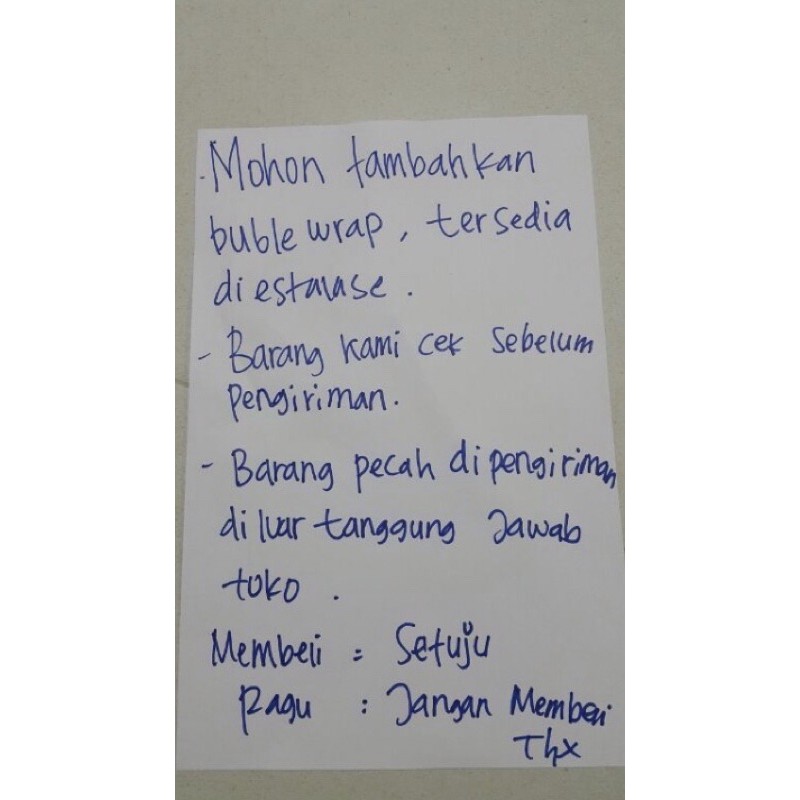 - Mohon tambahkan
buble wrap, tersedia
di estalase.
- Barang kami cek sebelum
pengiriman.
- Barang pecah di pengiriman
di luar tanggung Jawab
toko.
Membeli = Setuju
Ragu : Jangan Membeli
Thx